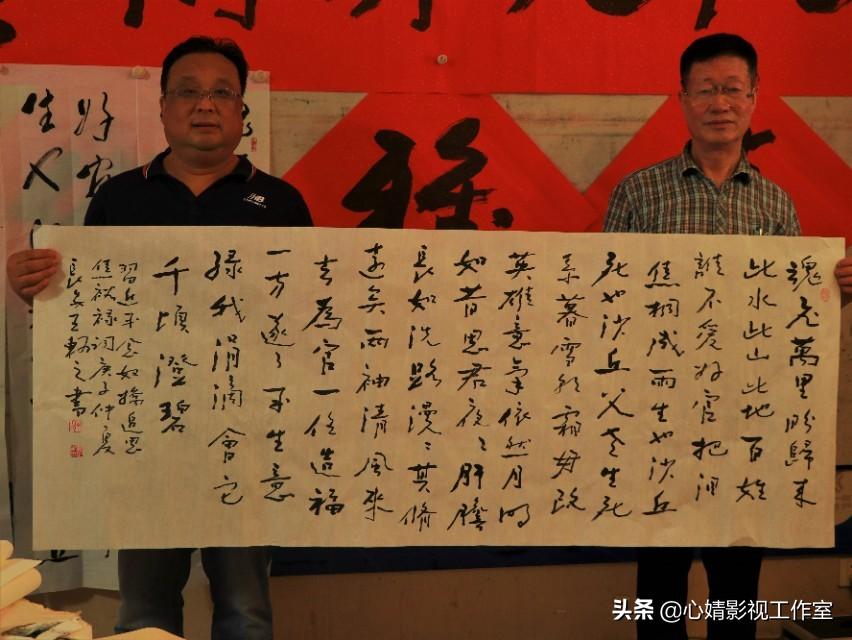 魂飛萬里盼歸来
此水此山此地百姓
誰不愛好官把泪
焦桐成雨生也沙丘
死也沙丘父老生死
系暮雪朝霜毋改
英雄意氣依然月明
如昔思君夜〻肝膽
長如洗路漫〻其修
遠矣两袖清風來
去為官一任造福
一方遂了平生意
緑我涓滴會它
千頃澄碧
習近平念奴嬌追思
焦裕禄詞庚子仲夏
長安王之書
头条 @心婧影视工作室